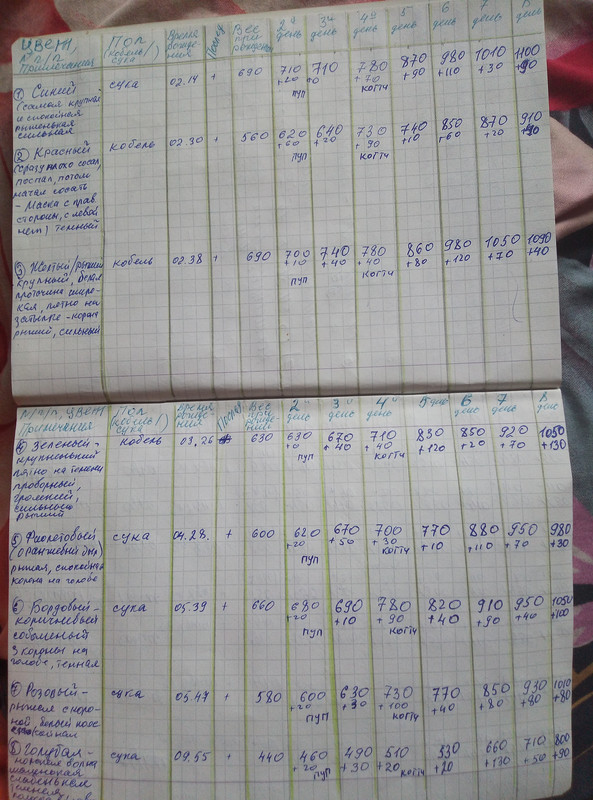 Цвет, Пол Время Послед Вес 2й 3й 4й 5 6 7 8
№ п/п (кобель/ рожде- при день день день день день день день
Примечания сука ния рождении
① Синий сука 02.14 + 690 710 710 780 870 980 1010 1100
(самая крупная +20 +0 +70 +90 +110 +30 +90
и спокойная пуп когти
рыженькая
сильная
② Красный кобель 02.30 + 560 620 640 730 740 850 870 910
(сразу плохо сосал, +60 +20 +90 +10 +60 +20
поспал, потом пуп когти
начал сосать
- Маска с прав.
стороны, с левой
нет) темный
③ Желтый/рыжий кобель 02.38 + 690 700 740 780 860 980 1050 1090
крупный, белая +10 +40 +40 +80 +120 +70 +40
проточина широ- пуп когти
кая, пятно на
затылке - корона
рыжий, сильный
№ п/п, цвет Пол Время Послед Вес 2й 3й 4й 5 день 6 7 8
Примечания (кобель/ рожде- при день день день день день день
сука ния рождении
④ Зеленый - кобель 03.26 + 630 630 670 710 830 850 920 1050
крупненький +0 +40 +40 +120 +20 +70 +130
пятно на темени пуп когти
проборный,
громкий,
сильный
рыжий
⑤ Фиолетовый сука 04.28. + 600 620 670 700 770 880 950 980
(оранжевый был) +20 +50 +30 +10 +110 +70 +30
рыжая, спокойная пуп когти
корона на голове
⑥ Бордовый - сука 05.39 + 660 680 690 780 820 910 950 1050
коричневый +20 +10 +90 +40 +90 +40 +100
соболеный пуп когти
3 короны на
голове, темная
⑦ Розовый - сука 05.47 + 580 600 630 730 770 850 930 1010
рыжая с коро- +20 +30 +100 +40 +80 +80 +80
ной, белый пояс пуп когти
⑧ Голубая - сука 09.55 + 440 460 490 510 530 660 710 800
+20 +30 +20 +20 +130 +50 +90
пуп когти